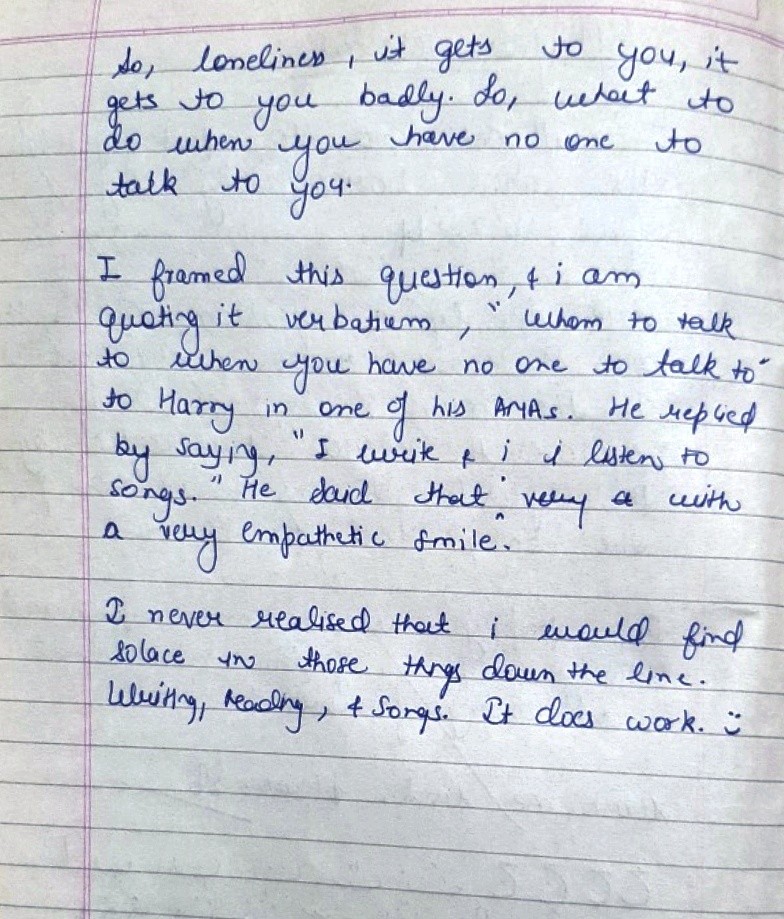 So, loneliness, it gets to you, it
gets to you badly. So, what to
do when you have no one to
talk to you.
I framed this question, & i am
quoting it verbatiem, "Whom to talk
to when you have no one to talk to"
to Harry in one of his AMAs. He replied
by saying, "I write & i i listen to
songs." He said that very a with
a very empathetic smile.
I never realised that i would find
solace in those things down the line.
Writing, reading, & songs. It does work. :)